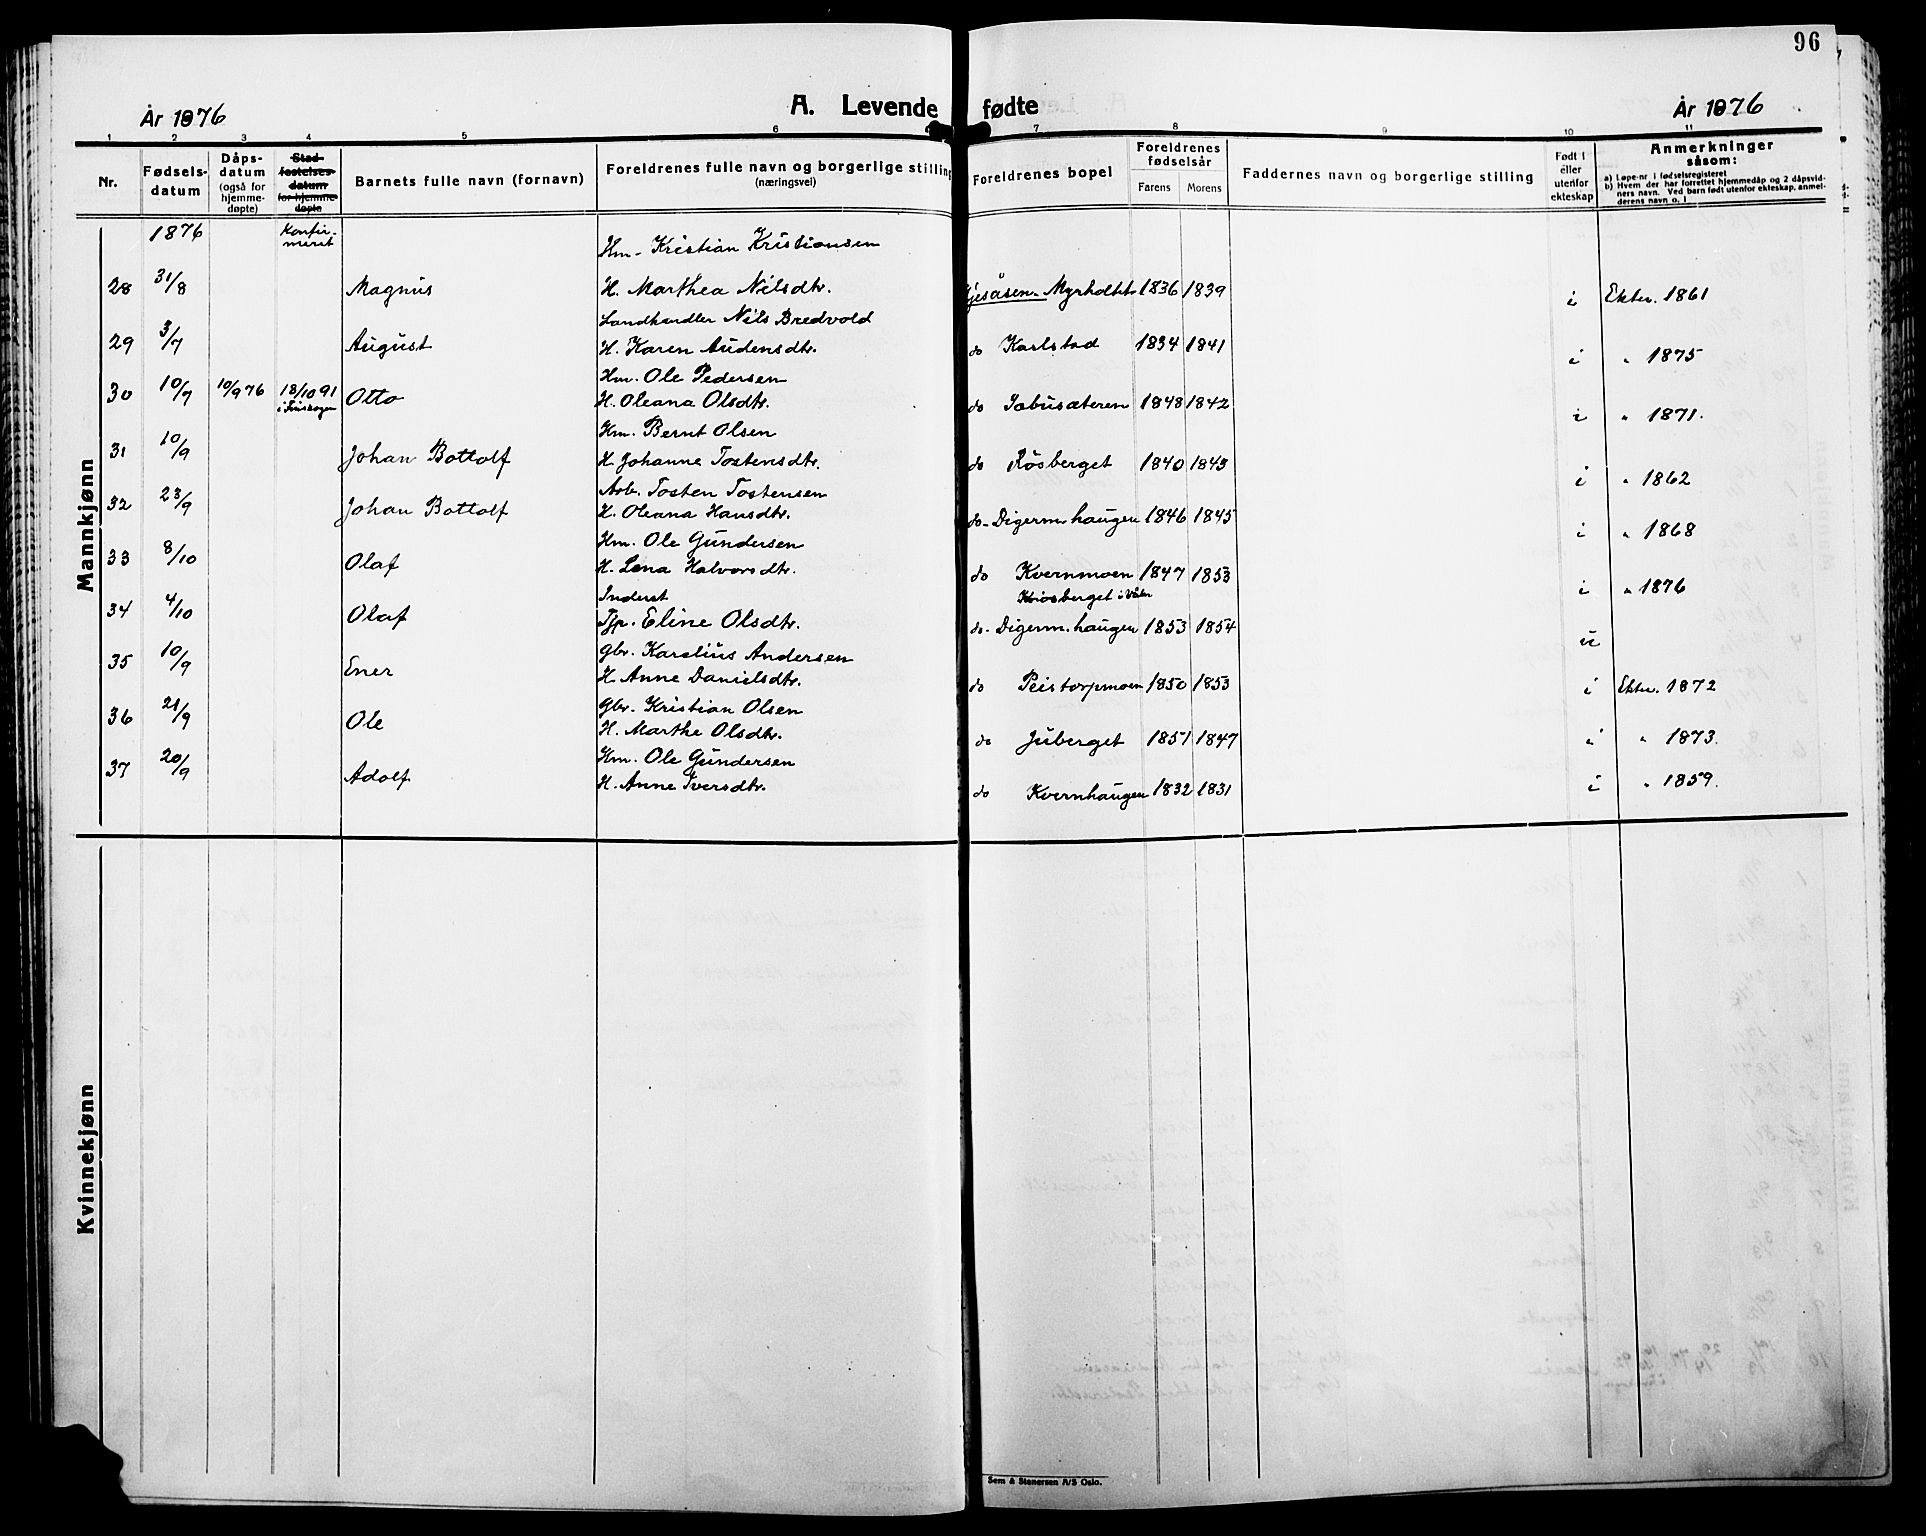 96
År 1876
A. Levende fødte
År 1876
1 2 3 4 5 6 7 8 9 10 11
Nr.
Fødsels-
datum
Dåps-
datum
(også for
hjemme-
døpte)
Stad-
festelses-
datum
for hjemme-
døpte
Barnets fulle navn (fornavn)
Foreldrenes fulle navn og borgerlige stilling
(næringsvei)
Foreldrenes bopel
Foreldrenes
fødselsår
Farens Morens
Faddernes navn og borgerlige stilling
Født i
eller
utenfor
ekteskap
Anmerkninger
såsom:
a) Løpe-nr. i fødselsregisteret
b) Hvem der har forrettet hjemmedåp og 2 dåpsvid-
ners navn. Ved barn født utenfor ekteskap, anmel-
derens navn o. l
Mannkjønn
1876 Konfir-
meret
Hm- Kristian Kristiansen
28 31/8 Magnus H. Marthea Nilsdtr. Gjesåsen. Myrholdt 1836 1839 i Ekter. 1861
Landhandler Nils Bredvold
29 3/7 August H. Karen Audensdtr. do Karlstad 1834 1841 i " 1875
Hm. Ole Pedersen
30 10/7 10/9 76 18/10 91 Otto H. Oleana Olsdtr. do 1848 1842 i " 1871.
Hm. Bernt Olsen
31 10/9 Johan Bottolf H. Johanne Tostensdtr. do Råsberget 1840 1843 i " 1862
Arb. Tosten Tostensen
32 23/9 Johan Bottolf H. Oleana Hansdtr. do- Digerm. haugen 1846 1845 i " 1868
Hm. Ole Gundersen
33 8/10 Olaf H. Lena Halvorsdtr. do Kvernmoen 1847 1853 i " 1876
Inderst
34 4/10 Olaf Tjp. Eline Olsdtr. do- Digerm. haugen 1853 1854 u
Gbr. Karelius Andersen
35 10/9 Ener H. Anne Danielsdtr. do Peistorpmoen 1850 1853 i Ekter. 1872
Gbr. Kristian Olsen
36 21/9 Ole H. Marthe Olsdtr. do Juberget 1851 1847 i " 1873.
Hm. Ole Gundersen
37 20/9 Adolf H. Anne Iversdtr. do Kvernhaugen 1832 1831 i " 1859.
Kvinnekjønn
Sem & Stenersen A/S Oslo.